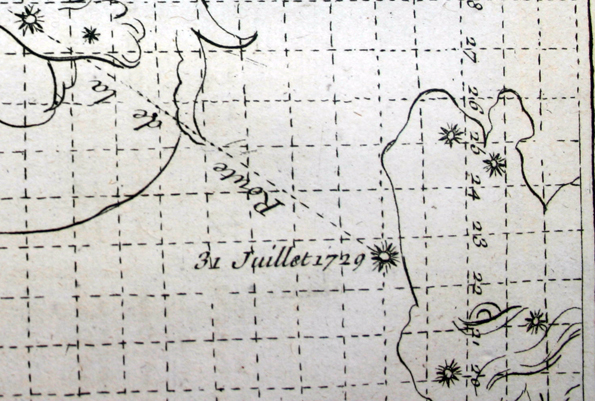 la
de
Route
31 Juillet 1729
28
27
26
25
24
23
22
21
20